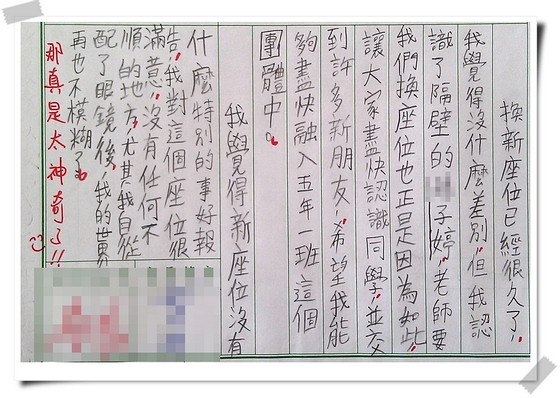 換新座位已經很久了,
我覺得沒什麼差別,但我認
識了隔壁的子婷,老師要
我們換座位也正是因為如此,
讓大家盡快認識同學,並交
到許多新朋友,希望我能
夠盡快融入五年一班這個
團體中。
我覺得新座位沒有
什麼特別的事好報
告,我對這個座位很
滿意,沒有任何不
順的地方,尤其我自從
配了眼鏡後,我的世界
再也不模糊了。
那真是太神奇了!!